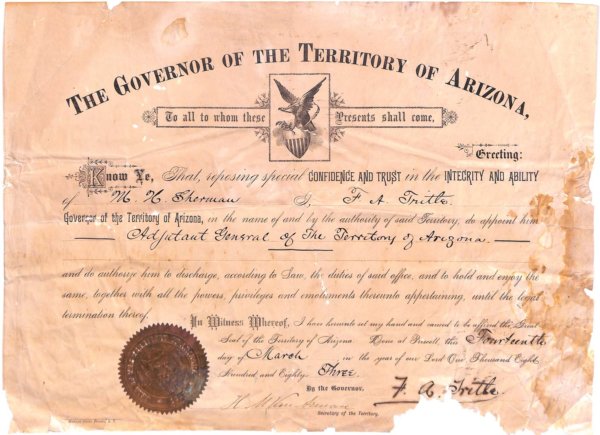 THE GOVERNOR OF THE TERRITORY OF ARIZONA,
To all to whom these Presents shall come,
Greeting:
Know Ye, That, reposing special CONFIDENCE AND TRUST in the INTEGRITY AND ABILITY
of M. H. Sherman I, F A Tritle
Governor of the Territory of Arizona, in the name of and by the authority of said Territory, do appoint him
Adjutant General of The Territory of Arizona.
and do authorize him to discharge, according to Law, the duties of said office, and to hold and enjoy the
same, together with all the powers, privileges and emoluments thereunto appertaining, until the legal
termination thereof.
In Witness Whereof, I have hereunto set my hand and caused to be affixed the Great
Seal of the Territory of Arizona Done at Prescott, this Fourteenth
day of March in the year of our Lord One Thousand Eight
Hundred and Eighty Three.
By the Governor. F. A. Tritle
H. M. Van Arman
Secretary of the Territory.